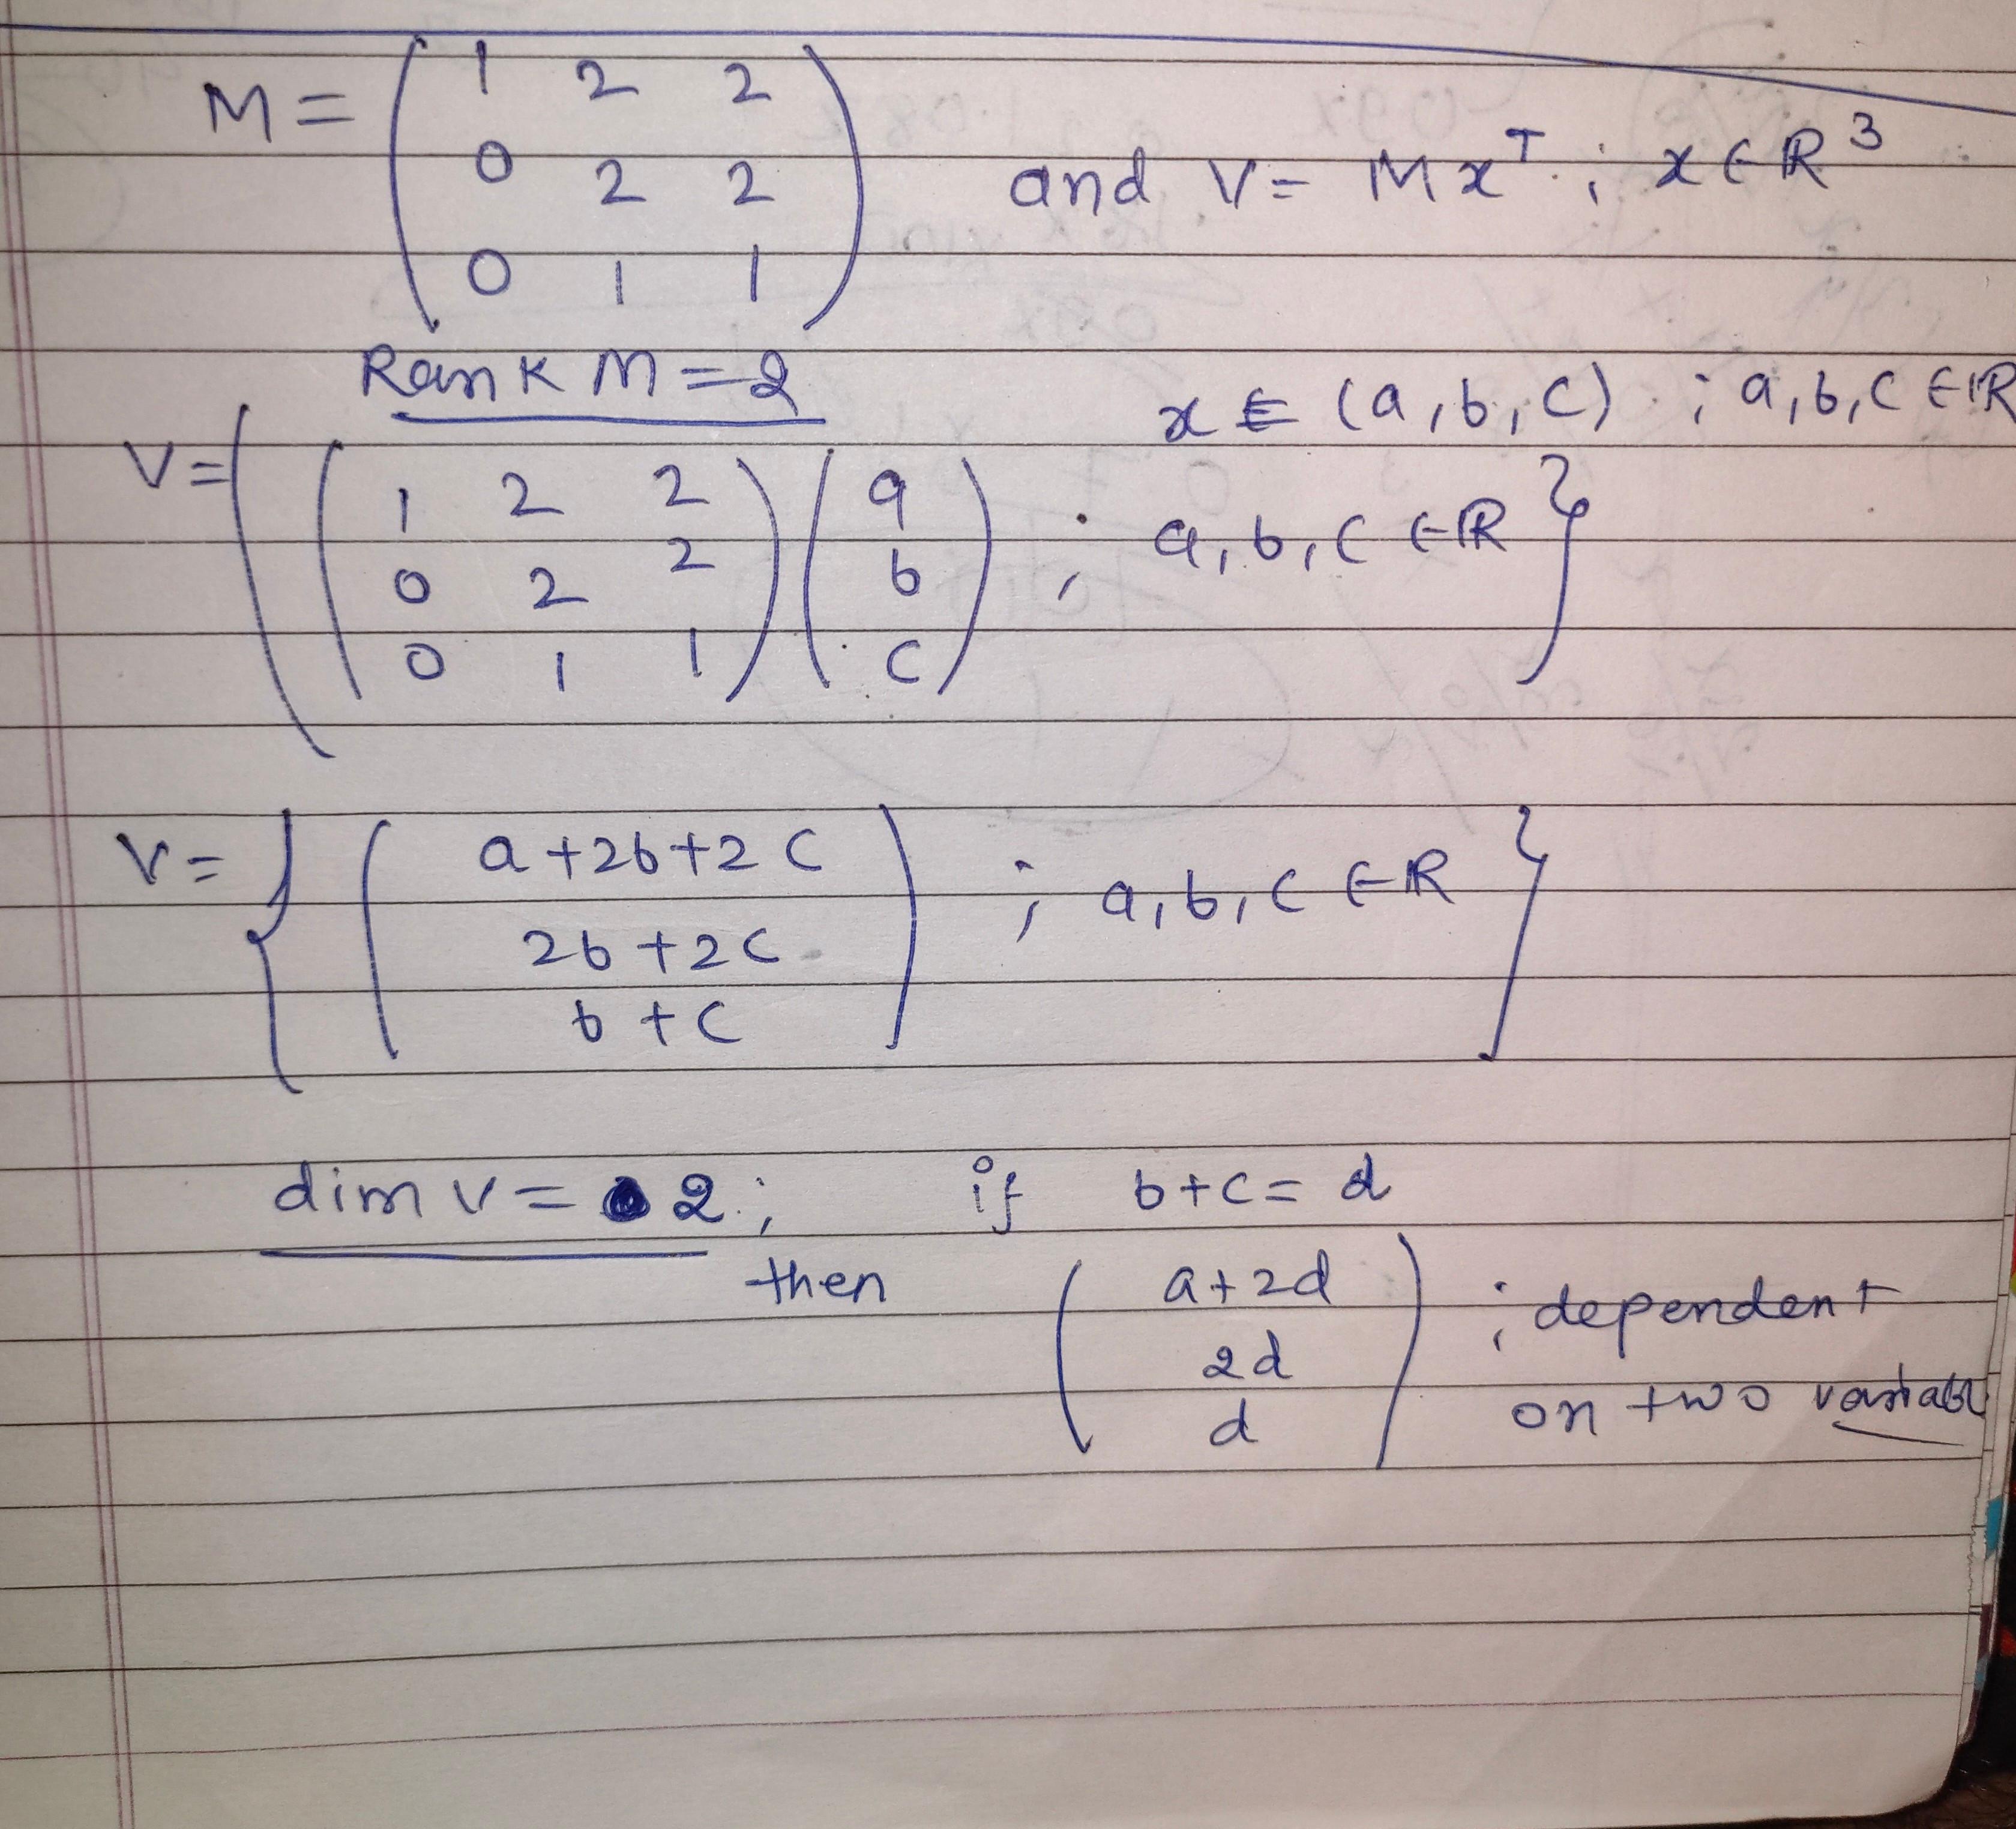 M = ( 1 2 2
0 2 2
0 1 1 ) and V = M x^T ; x ∈ R^3
Rank M = 2
x ∈ (a, b, c) ; a, b, c ∈ R
V = { ( 1 2 2
0 2 2
0 1 1 ) ( a
b
c ) ; a, b, c ∈ R }
V = { ( a + 2b + 2c
2b + 2c
b + c ) ; a, b, c ∈ R }
dim V = 2 ; if b + c = d
then ( a + 2d
2d
d ) ; dependent
on two variable